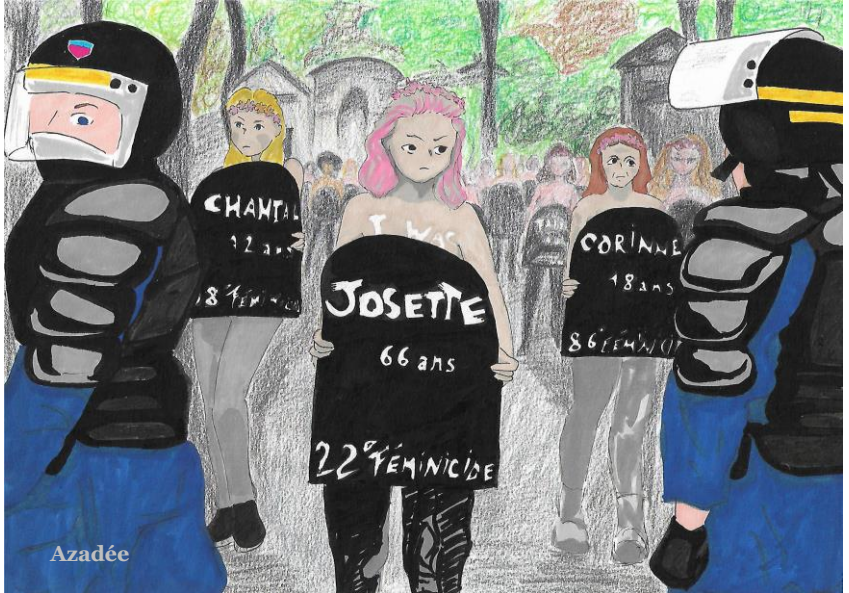 CHANTAL
12 ans
18°FÉMINICID
I WAS
JOSETTE
66 ans
22°FÉMINICIDE
CORINNE
18 ans
86°FÉMINICID
Azadée